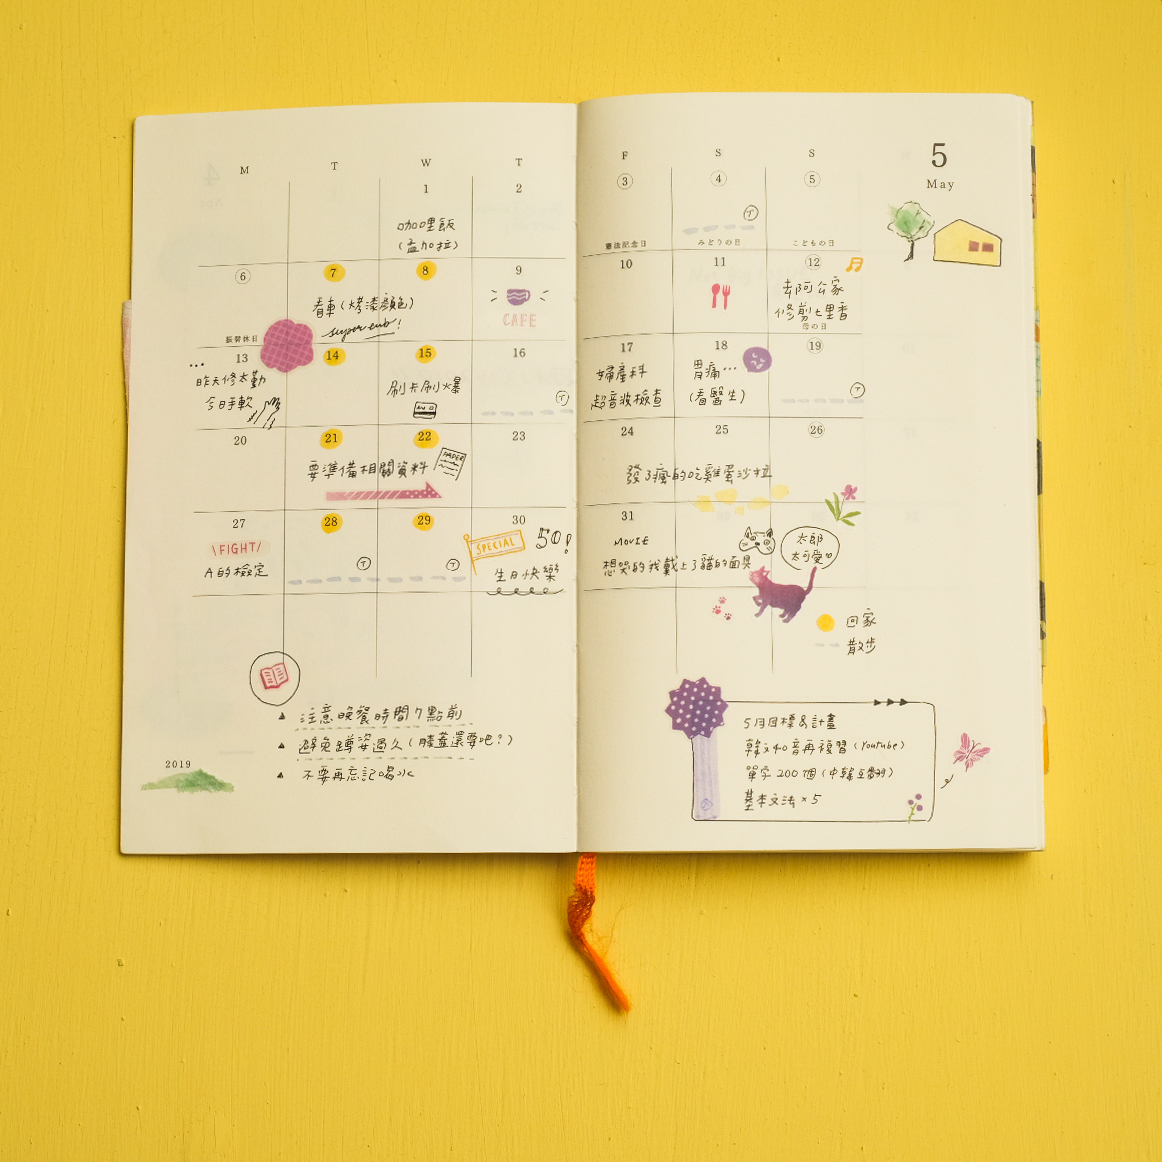 M T W T F S S
5
May
1 2 3 4 5
咖哩飯
(孟加拉)
憲法記念日 みどりの日 こどもの日
6 7 8 9 10 11 12
看車(烤漆顏色)
super enb!
CAFE
去阿公家
修剪七里香
振替休日
母の日
13 14 15 16 17 18 19
...
昨天修太勤
今日手軟
刷卡刷爆
婦產科
超音波檢查
胃痛...
(看醫生)
20 21 22 23 24 25 26
要準備相關資料
PAPER
發了瘋的吃雞蛋沙拉
27 28 29 30 31
\FIGHT/
A的檢定
SPECIAL
50!
生日快樂
MOVIE
想哭的我戴上了貓的面具
太郎
太可愛♡
回家
散步
▲ 注意晚餐時間7點前
▲ 避免蹲姿過久(膝蓋還要吧?)
▲ 不要再忘記喝水
2019
5月目標&計畫
韓文40音再複習(Youtube)
單字200個(中韓互翻)
基本文法×5